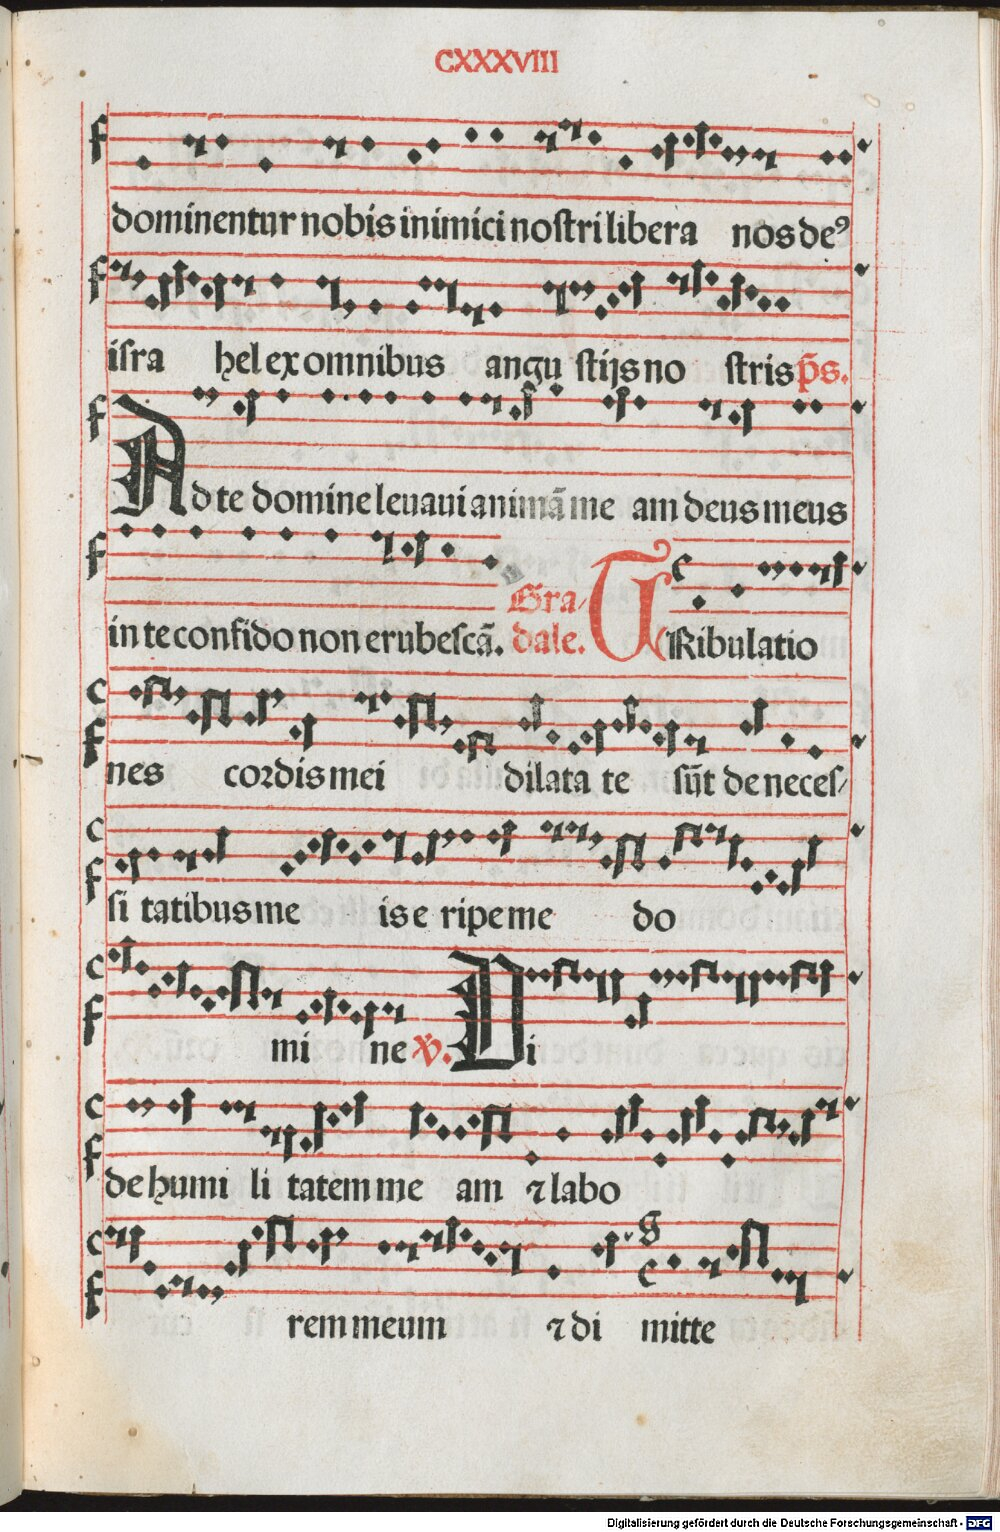 CXXXVIII
dominentur nobis inimici noſtri libera nos deꝰ
iſra hel ex omnibus angu ſtijs no ſtris p̄s.
Ad te domine leuaui animā me am deus meus
in te confido non erubeſcā. Gra⸗dale. TRibulatio
nes cordis mei dilata te ſūt de neceſ⸗
ſi tatibus me is e ripe me do
mi ne ℣. Di
de humi li tatem me am ⁊ labo
rem meum ⁊ di mitte
Digitalisierung gefördert durch die Deutsche Forschungsgemeinschaft - DFG